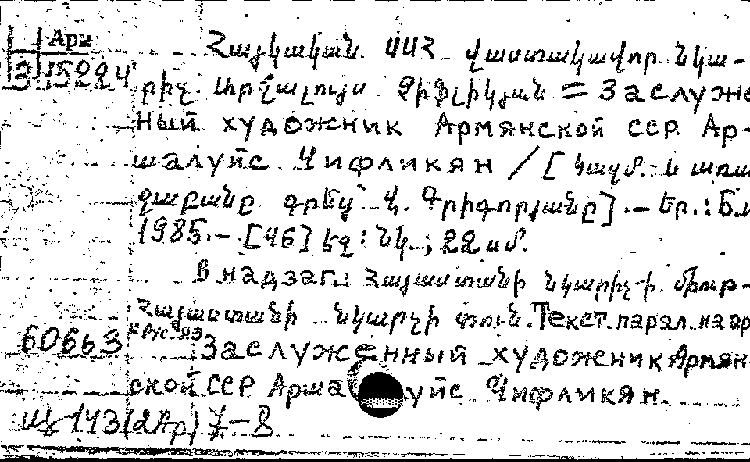 Арм
З 15224
Հայկական ՍՍՀ վաստակավոր նկա-
րիչ Արշալույս Չիֆլիկյան = Заслуже
ный художник Армянской ССР Ар-
шалуйс Чифликян / [ Կազմ. և առա
ջաբանը գրել՝ Գրիգորյանը]. — Եր.: Б.и
1985. — [46] եջ: նկ.; 22 սմ.
В надзаг.: Հայաստանի նկարիչ-ի միութ-
Հայաստանի նկարչի տուն. Текст. парал. на ар
и рус. яз.
60663 Заслуженный художник Армян
ской ССР Арша уйс Чифликян.
143(2Ар) 7-8